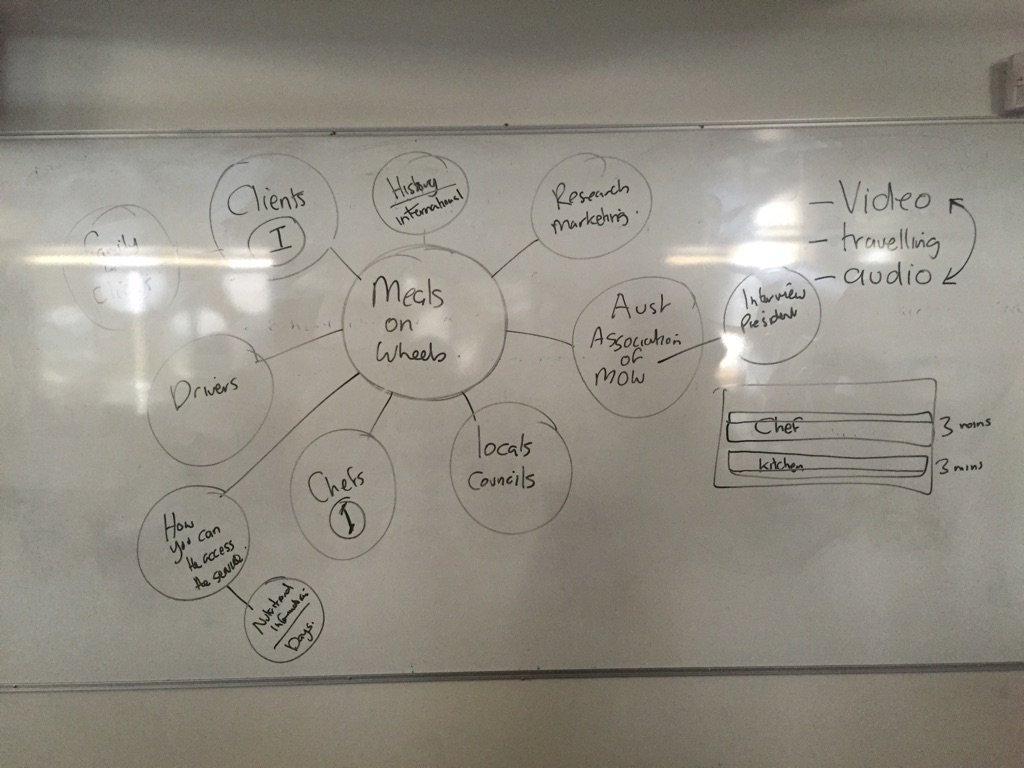 Clients
I
History
international
Research
marketing.
- Video
- travelling
- audio
Family
Clients
Meals
on
Wheels.
Aust
Association
of
MOW
Interview
President
Drivers
Chef
3 mins
kitchen
3 mins
locals
Councils
Chefs
I
How
you can
the access
the service.
Nutritional
Information
Days.